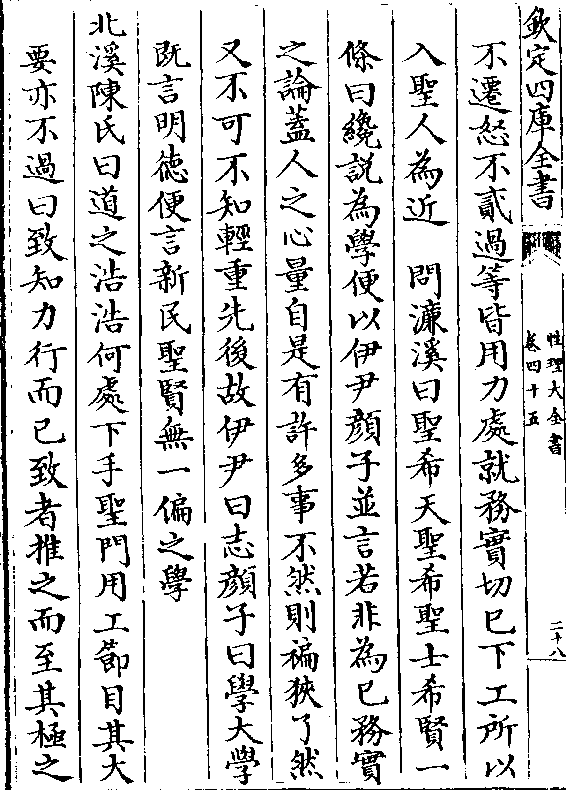 欽定四庫全書
性理大全書
卷四十五
二十八
不遷怒不貳過等皆用力處就務實切已下工所以
入聖人為近　問濂溪曰聖希天聖希聖士希賢一
條曰纔説為學便以伊尹顔子並言若非為已務實
之論蓋人之心量自是有許多事不然則褊狹了然
又不可不知輕重先後故伊尹曰志顔子曰學大學
既言明徳便言新民聖賢無一偏之學
北溪陳氏曰道之浩浩何處下手聖門用工節目其大
要亦不過曰致知力行而已致者推之而至其極之